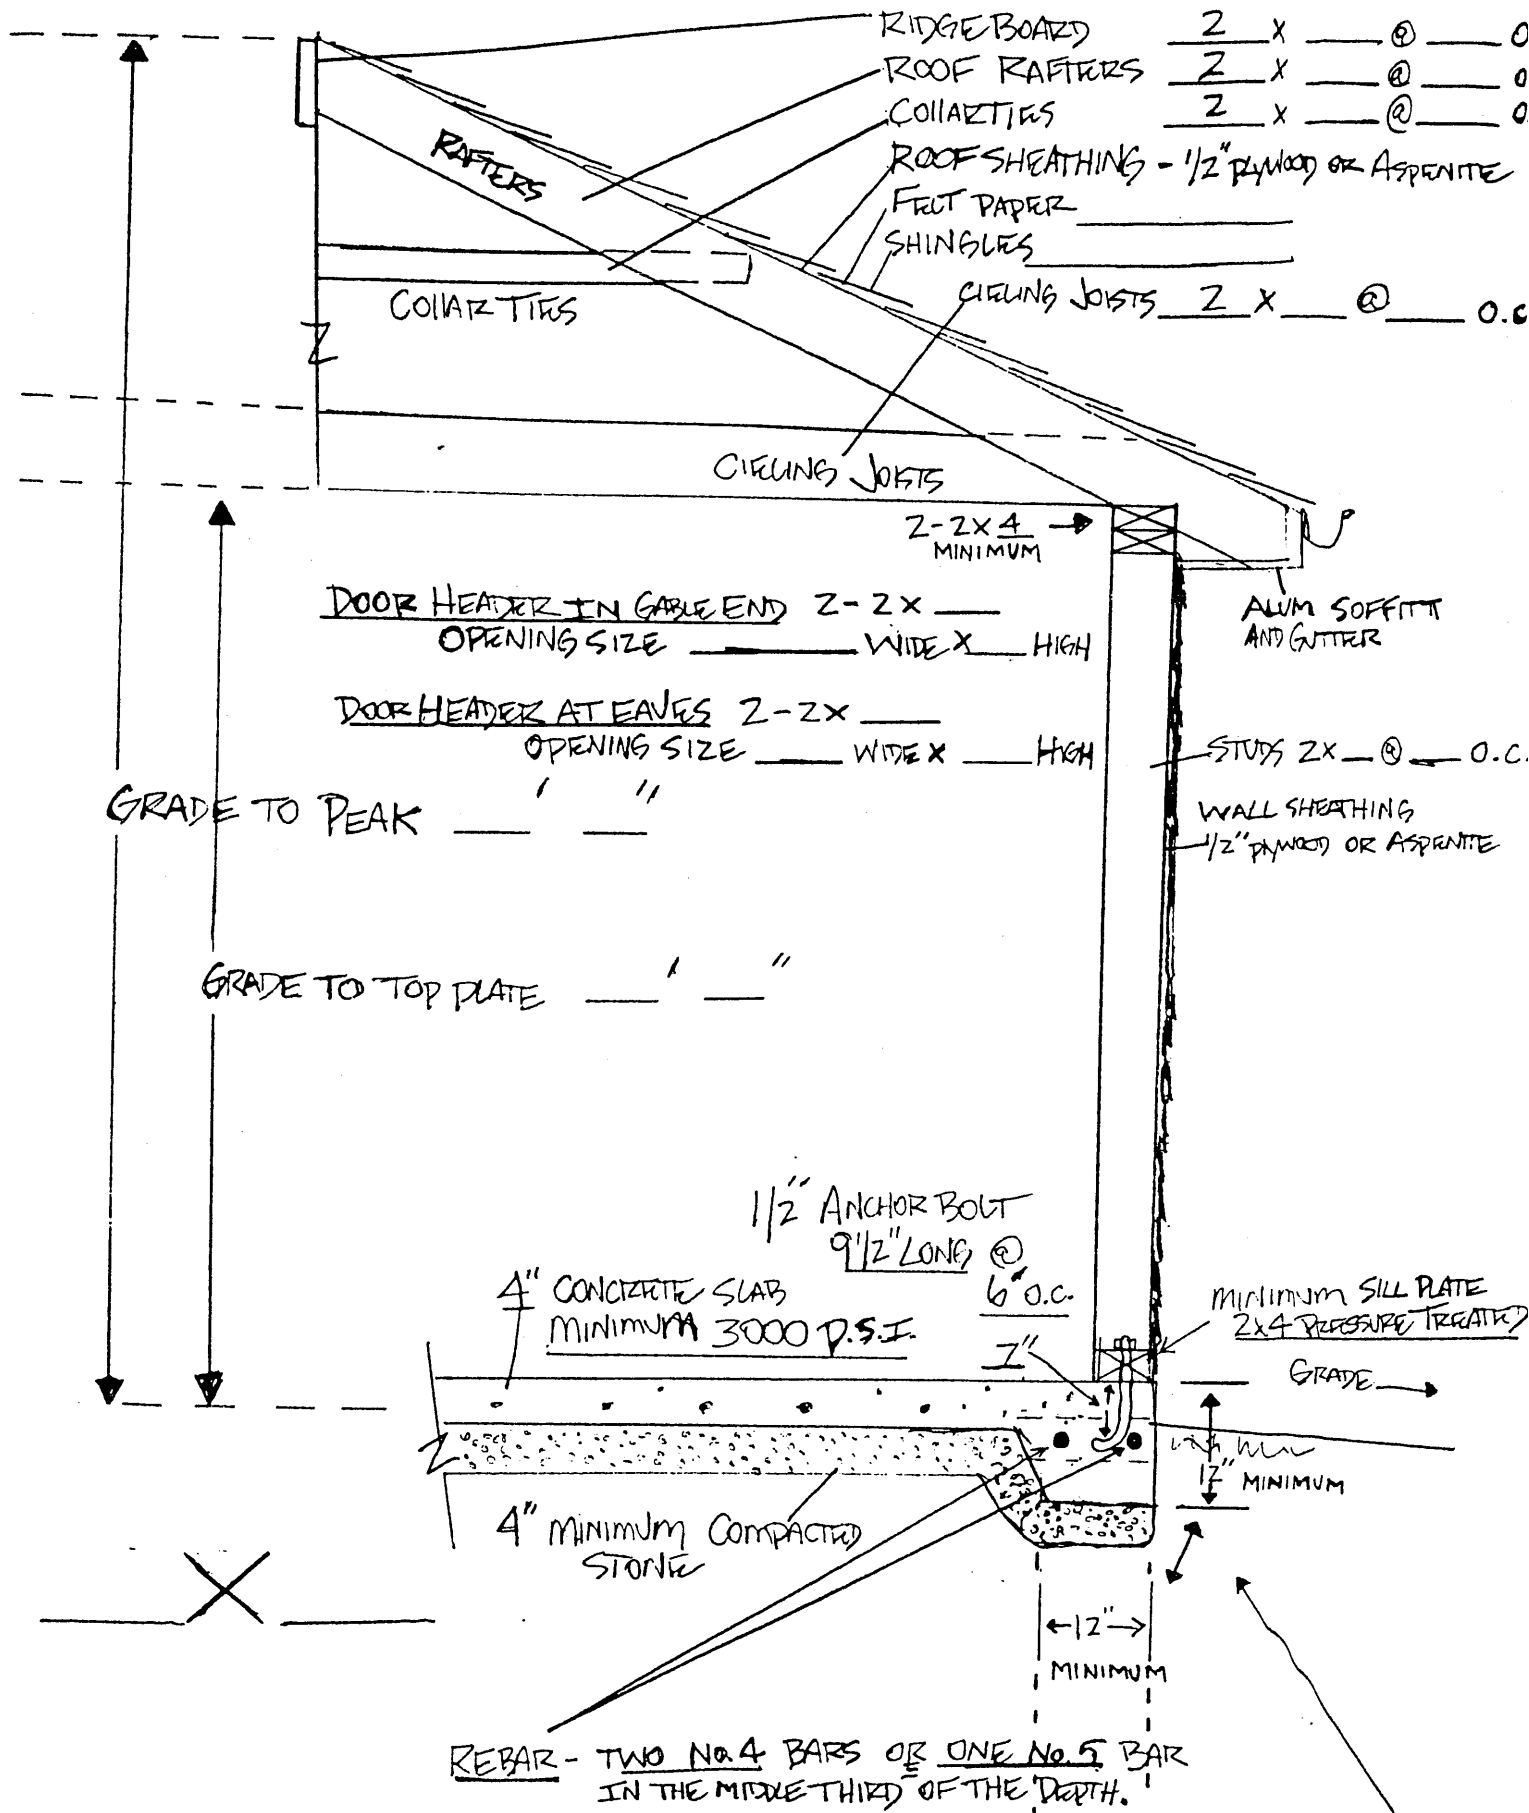 RIDGE BOARD 2 X ___ @ ___ O
ROOF RAFTERS 2 X ___ @ ___ O
COLLAR TIES 2 X ___ @ ___ O.
ROOF SHEATHING - 1/2" PLYWOOD OR ASPENITE
FELT PAPER
SHINGLES
CIELING JOISTS 2 X ___ @ ___ O.C
RAFTERS
COLLAR TIES
CIELING JOISTS
2-2X4
MINIMUM
DOOR HEADER IN GABLE END 2-2X ___
OPENING SIZE ___ WIDE X ___ HIGH
ALUM SOFFITT
AND GUTTER
DOOR HEADER AT EAVES 2-2X ___
OPENING SIZE ___ WIDE X ___ HIGH
STUDS 2X ___ @ ___ O.C.
GRADE TO PEAK ___ ' ___ "
WALL SHEATHING
1/2" PLYWOOD OR ASPENITE
GRADE TO TOP PLATE ___ ' ___ "
1/2" ANCHOR BOLT
9 1/2" LONG @
6" O.C.
7"
4" CONCRETE SLAB
MINIMUM 3000 P.S.I.
MINIMUM SILL PLATE
2X4 PRESSURE TREATED
GRADE
12" MINIMUM
4" MINIMUM COMPACTED
STONE
___ X ___
12"
MINIMUM
REBAR - TWO No. 4 BARS OR ONE No. 5 BAR
IN THE MIDDLE THIRD OF THE DEPTH.